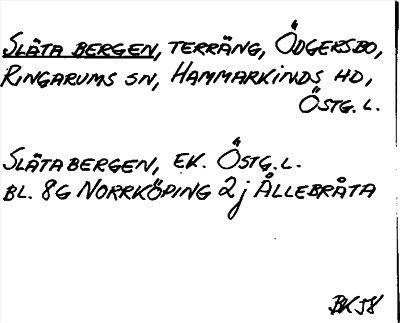 SLÄTA BERGEN, TERRÄNG, ÖDGERSBO,
RINGARUMS SN, HAMMARKINDS HD,
ÖSTG. L.
SLÄTABERGEN, EK. ÖSTG. L.
BL. 8G NORRKÖPING 2j ÅLLEBRÅTA
BK58